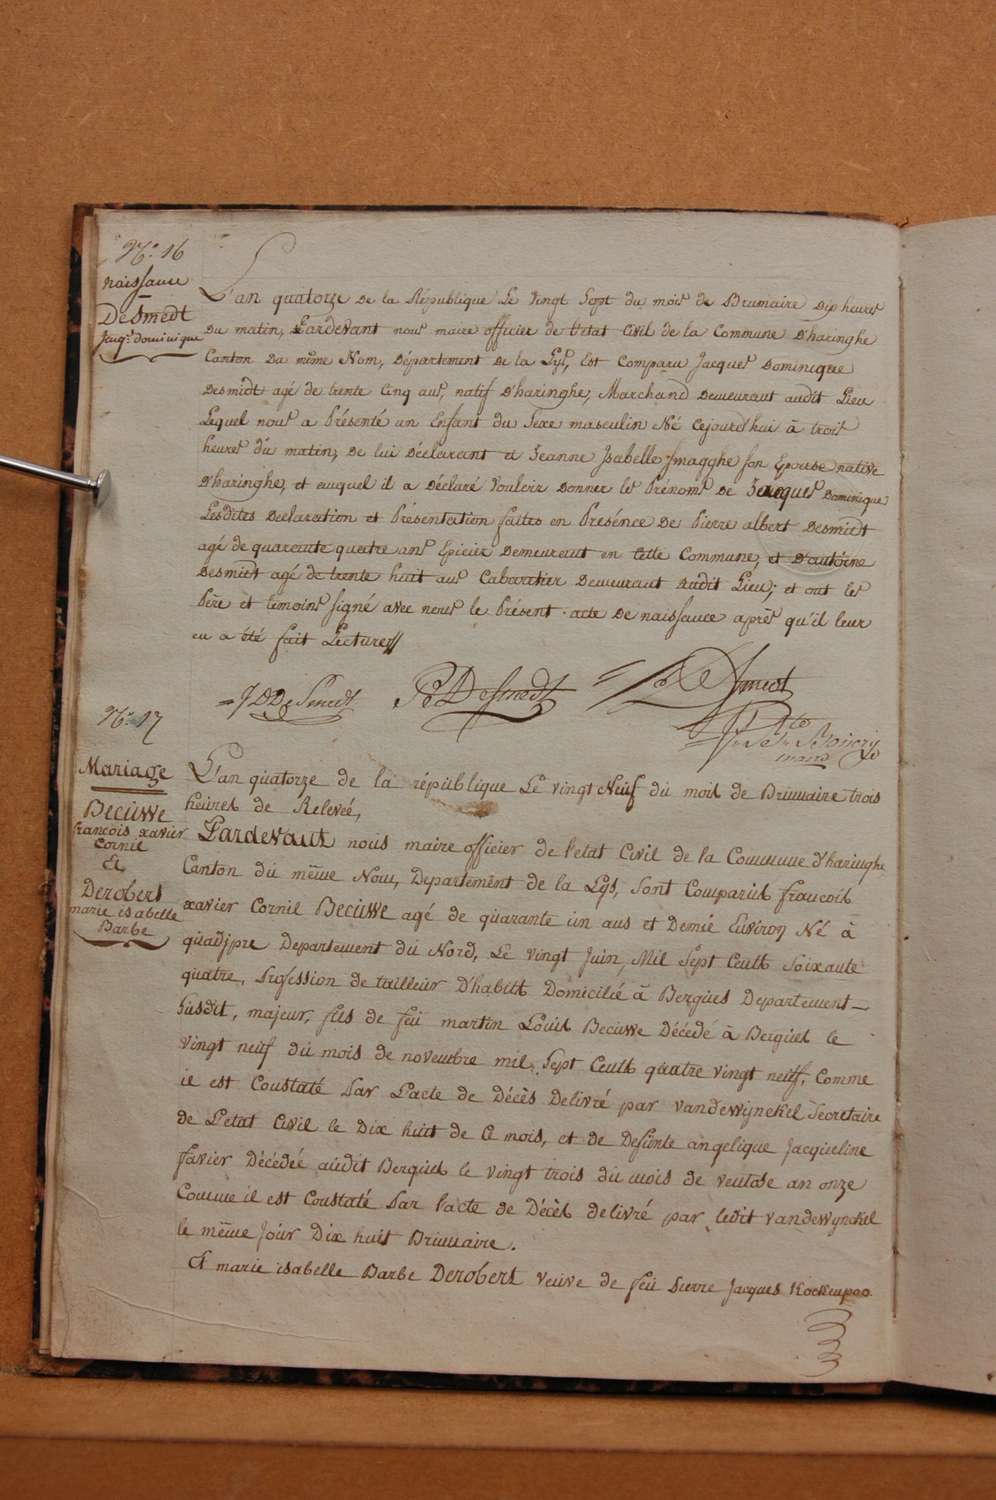 N.° 16
naissance
DeSmedt
Jacq.s dominique
L'an quatorze de la République Le vingt Sept du mois de Brumaire Dix heures
du matin, Pardevant nous maire officier de l'etat Civil de la Commune D'haringhe
Canton Du même Nom, Département de la Lys, Est Comparu Jacques Dominique
Desmidt agé de trente Cinq ans, natif D'haringhe, Marchand Demeurant audit Lieu
Lequel nous a Présenté un Enfant du Sexe masculin Né Cejourd'hui à trois
heures du matin, De lui Déclarant et Jeanne Isabelle Smagghe son Epouse native
D'haringhe, et auquel il a Déclaré Vouloir Donner les Prénoms De Jacques Dominique
Lesdites Declaration et Présentation faites en Présence De Pierre albert Desmidt
agé de quarante quatre ans Epicier Demeurant en Cette Commune, et D'antoine
Desmidt agé de trente huit ans Cabaretier Demeurant audit Lieu; et ont les
Père et temoins signé avec nous le Présent acte De naissance après qu'il leur
en a été fait Lecture //
J D De Smedt Pe DeSmedt Desmedt
maire
N.° 17
Mariage
Becuwe
francois xavier
Cornil
Et
Derobert
marie isabelle
Barbe
L'an quatorze de la république Le vingt Neuf du mois de Brumaire trois
heures de Relevée,
Pardevant nous maire officier de l'etat Civil de la Commune d'haringhe
Canton du même Nom, Departement de la Lys, sont Comparus francois
xavier Cornil Becuwe agé de quarante un ans et Demie Environ Né à
quadjpre Departement du Nord, Le vingt Juin, Mil Sept Cents Soixante
quatre, Profession de tailleur D'habits Domicilié à Bergues Departement
susdit, majeur, fils de feu martin Louis Becuwe Décédé à Bergues le
vingt neuf du mois de novembre mil Sept Cents quatre vingt neuf, Comme
il est Constaté Par L'acte de Décès Delivré par vandewynckel Secretaire
de L'etat Civil le Dix huit de Ce mois, et de Defunte angelique Jacqueline
favier Décédée audit Bergues le vingt trois du mois de ventose an onze
Comme il est Constaté Par l'acte de Décès delivré par ledit vandewynckel
le même Jour Dix huit Brumaire.
Et marie isabelle Barbe Derobert veuve de feu Pierre Jacques Kockenpoo